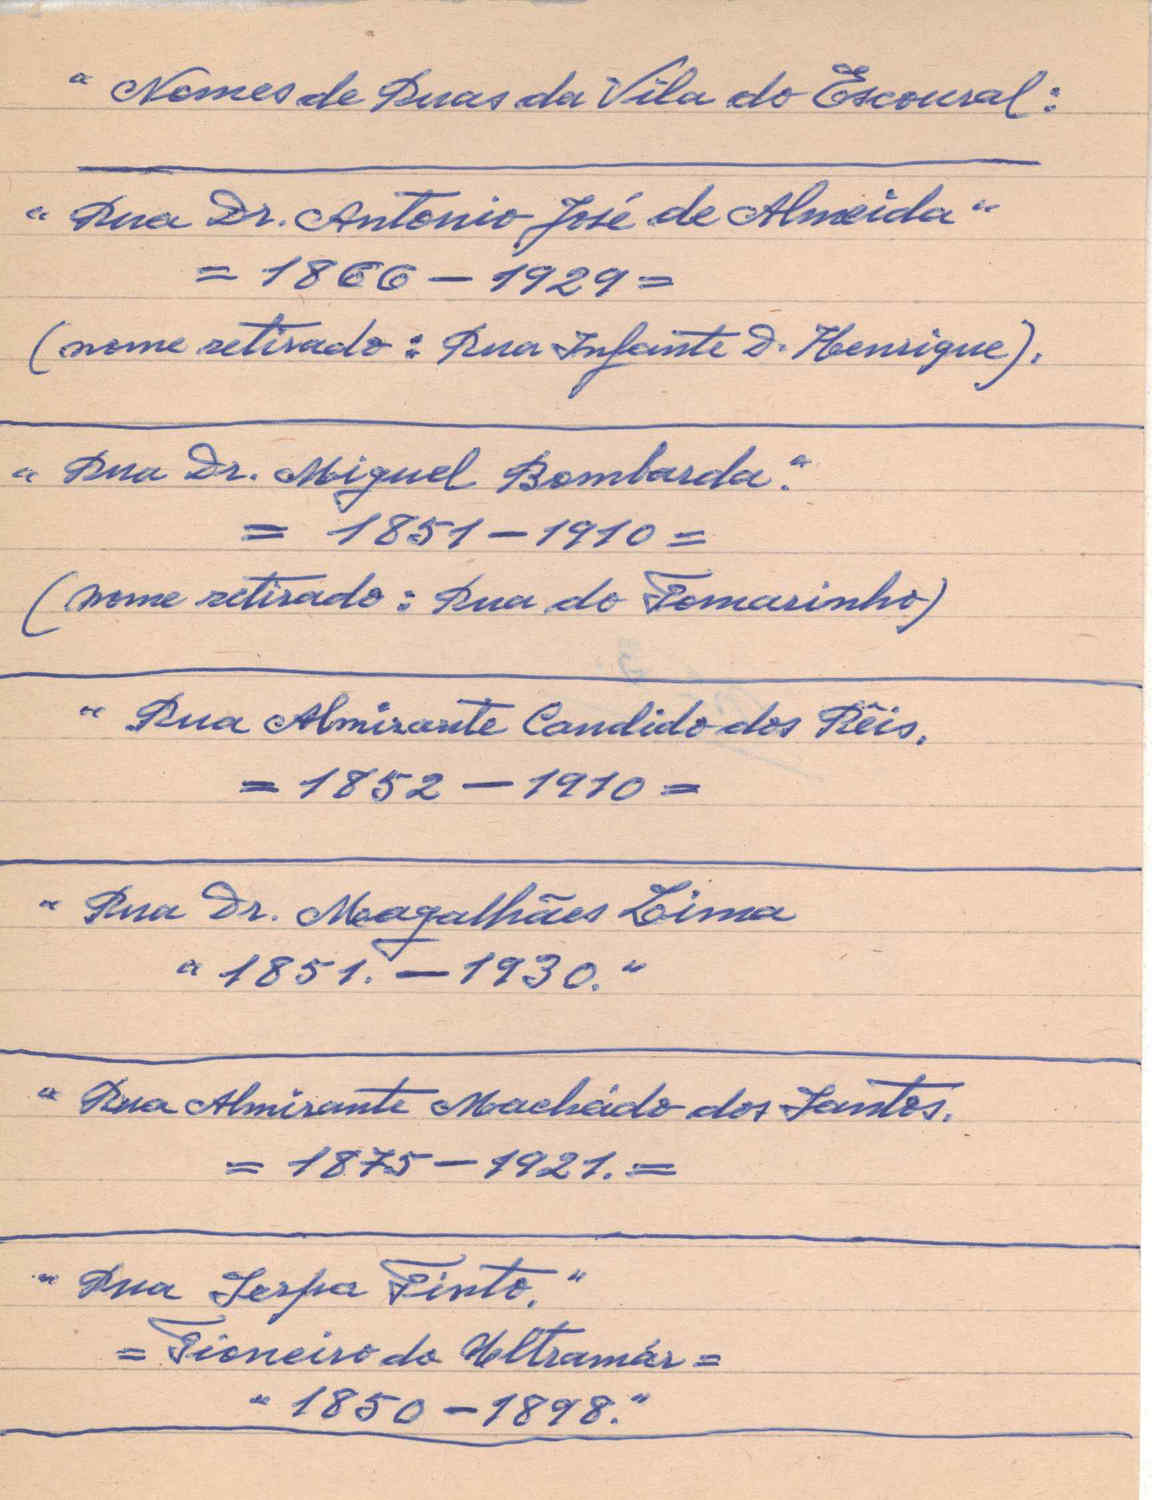 " Nomes de Ruas da Vila do Escoural:
" Rua Dr. Antonio José de Almeida "
= 1866 - 1929 =
(nome retirado: Rua Infante D. Henrique).
" Rua Dr. Miguel Bombarda."
= 1851 - 1910 =
(nome retirado: Rua do Pomarinho)
" Rua Almirante Candido dos Rêis.
= 1852 - 1910 =
" Rua Dr. Magalhães Lima
" 1851. - 1930. "
" Rua Almirante Machádo dos Santos.
= 1875 - 1921. =
" Rua Serpa Pinto. "
= Pioneiro do Ultramár =
" 1850 - 1898. "